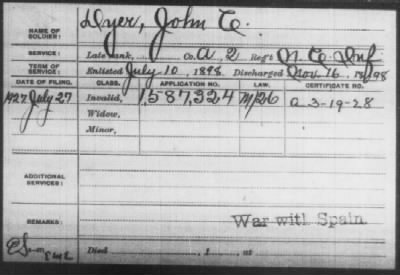 NAME OF SOLDIER: Dyer, John C.
SERVICE: Late rank, Co. A, 2 Reg't N. C. Inf
TERM OF SERVICE: Enlisted July 10, 1898, Discharged Nov. 16, 1898
DATE OF FILING. CLASS. APPLICATION NO. LAW. CERTIFICATE NO.
1927 July 27 Invalid, 1,587,324 M/26 a 3-19-28
Widow,
Minor,
ADDITIONAL SERVICES:
REMARKS: War with Spain
Died , 1 , at